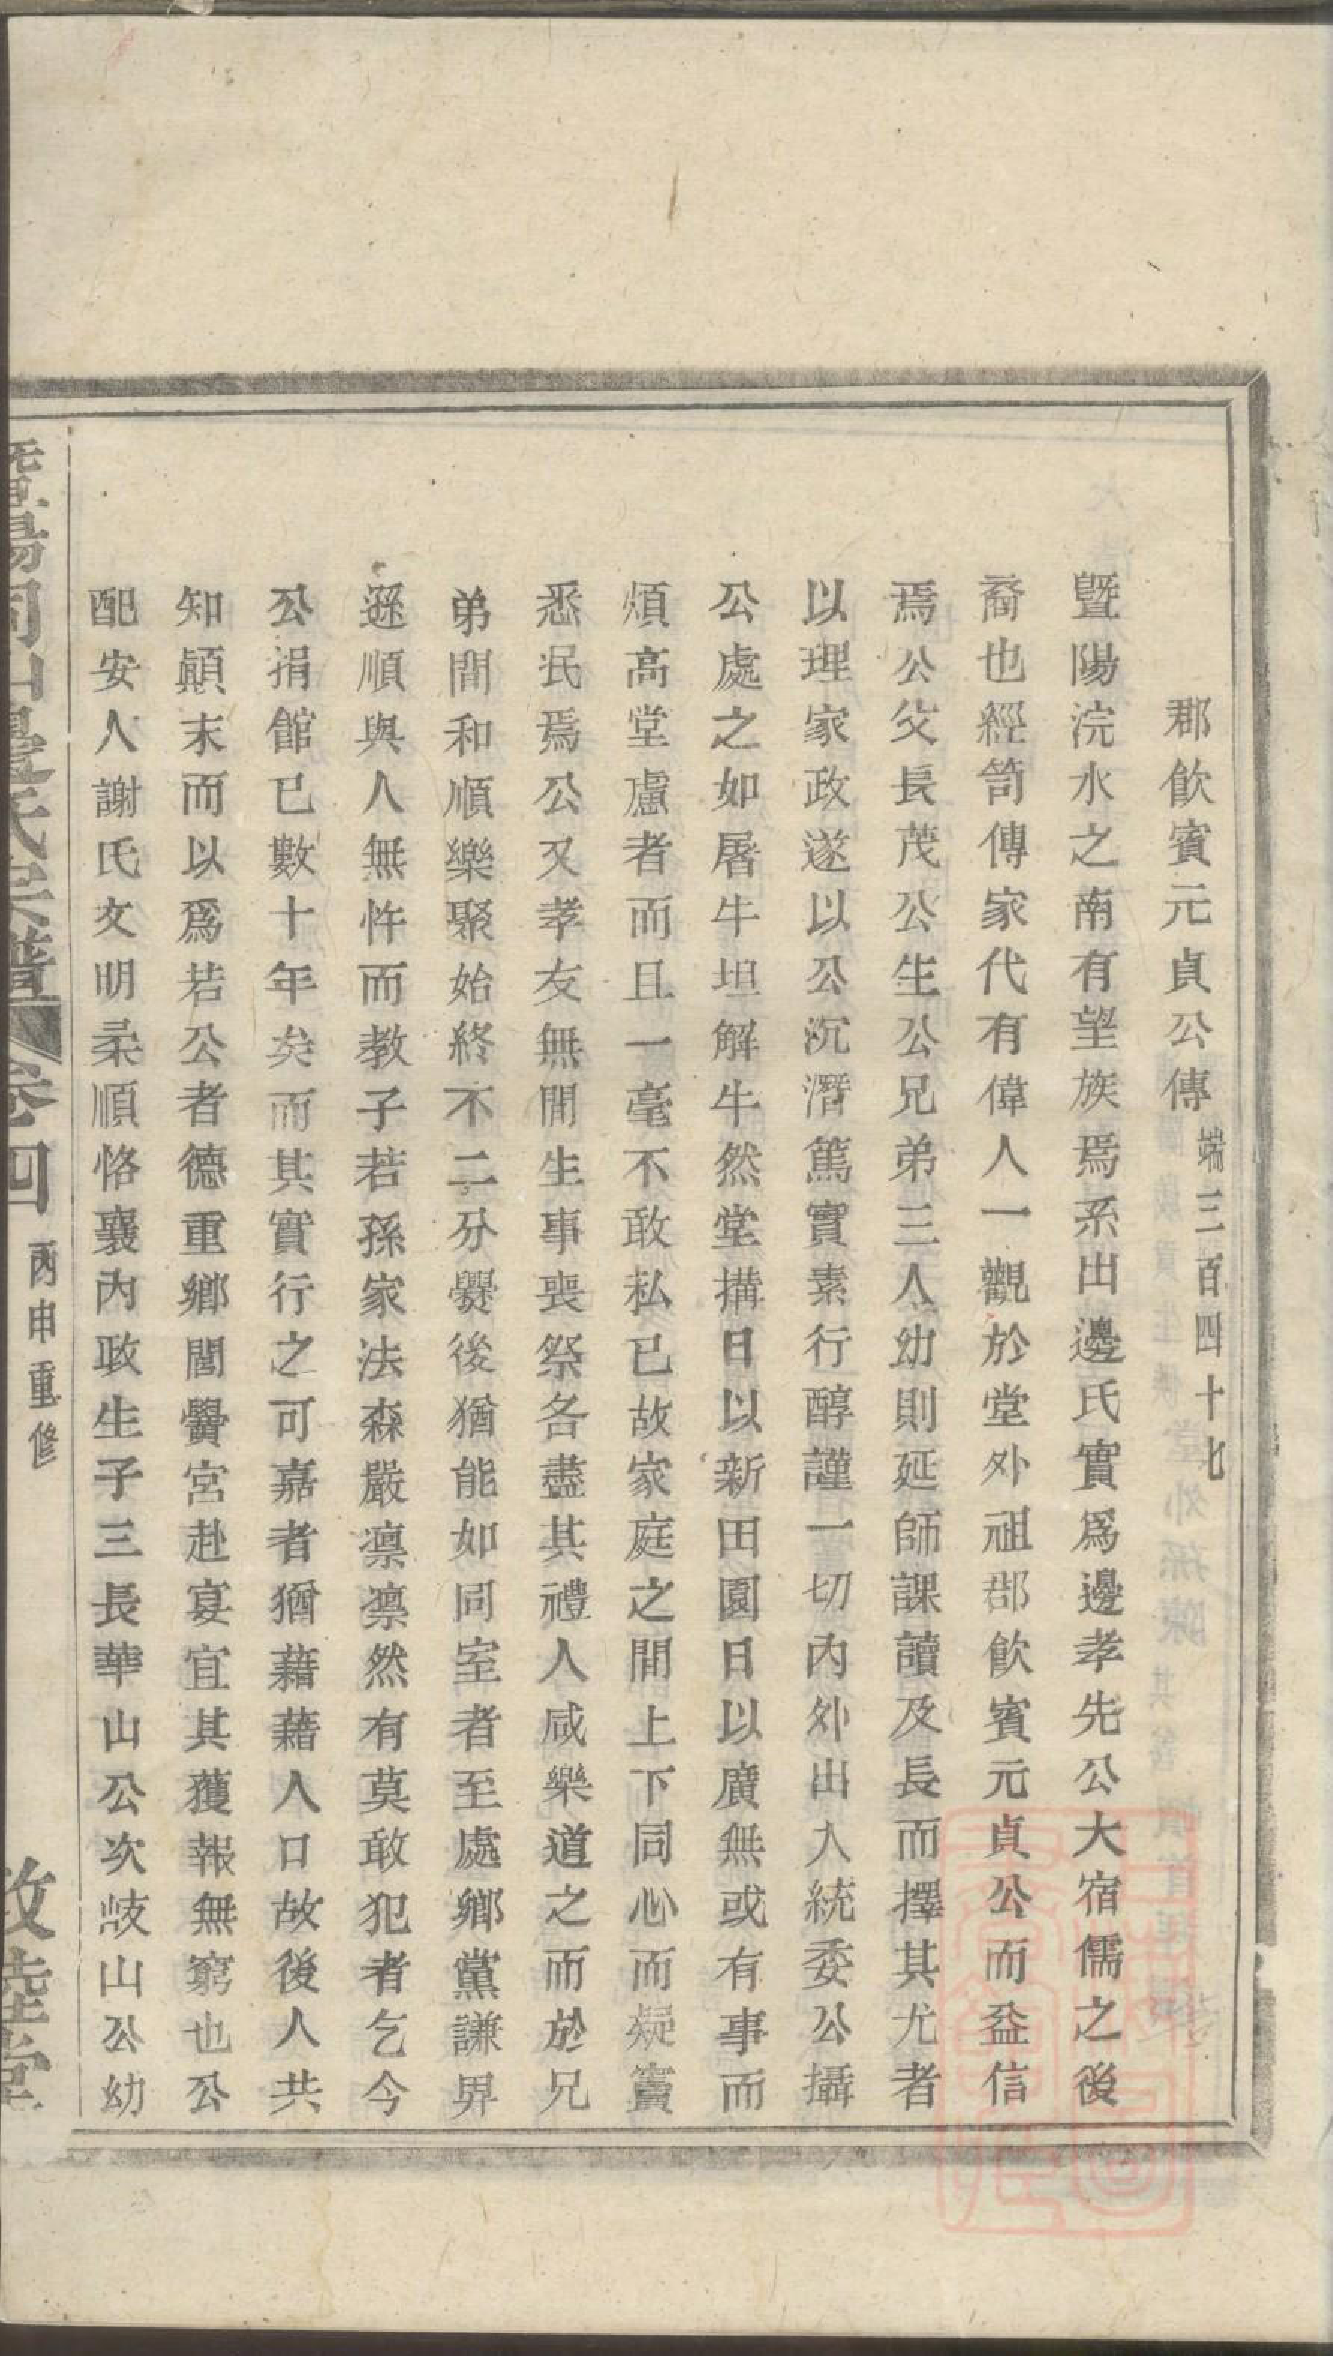 郡飲賓元貞公傳 端三百四十七
暨陽浣水之南有望族焉系出邊氏實爲邊孝先公大宿儒之後
裔也經笥傳家代有偉人一觀於堂外祖郡飲賓元貞公而益信
焉公父長茂公生公兄弟三人幼則延師課讀及長而擇其尤者
以理家政遂以公沉潛篤實素行醇謹一切內外出入統委公攝
公處之如屠牛坦解牛然堂搆日以新田園日以廣無或有事而
煩高堂慮者而且一毫不敢私已故家庭之間上下同心而疑竇
悉泯焉公又孝友無間生事喪祭各盡其禮人咸樂道之而於兄
弟間和順樂聚始終不二分爨後猶能如同室者至處鄉黨謙畀
遜順與人無忤而教子若孫家法森嚴凛凛然有莫敢犯者乞今
公捐館已數十年矣而其實行之可嘉者猶藉藉人口故後人共
知顛末而以爲若公者德重鄉閭黌宮赴宴宜其獲報無窮也公
配安人謝氏文明柔順恪襄內政生子三長華山公次歧山公幼
暨陽同山邊氏宗譜 卷四 丙申重修 敦睦堂